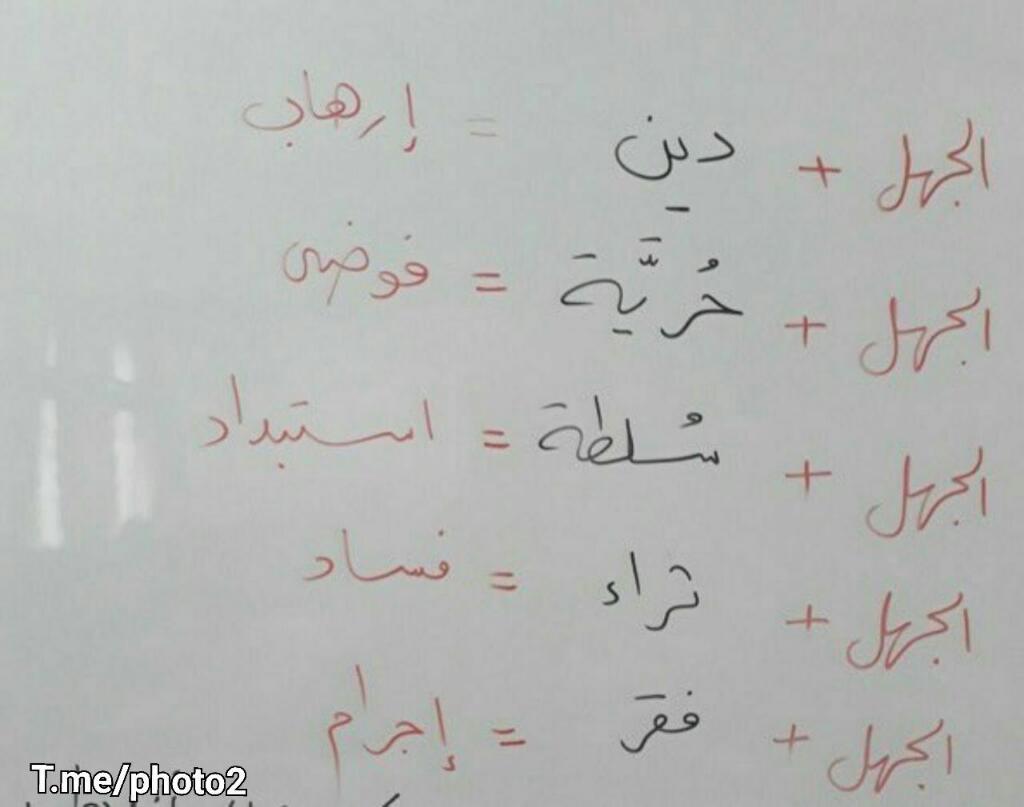 الجهل + دين = إرهاب
الجهل + حُريَّة = فوضى
الجهل + سُلطة = استبداد
الجهل + ثراء = فساد
الجهل + فقر = إجرام
T.me/photo2